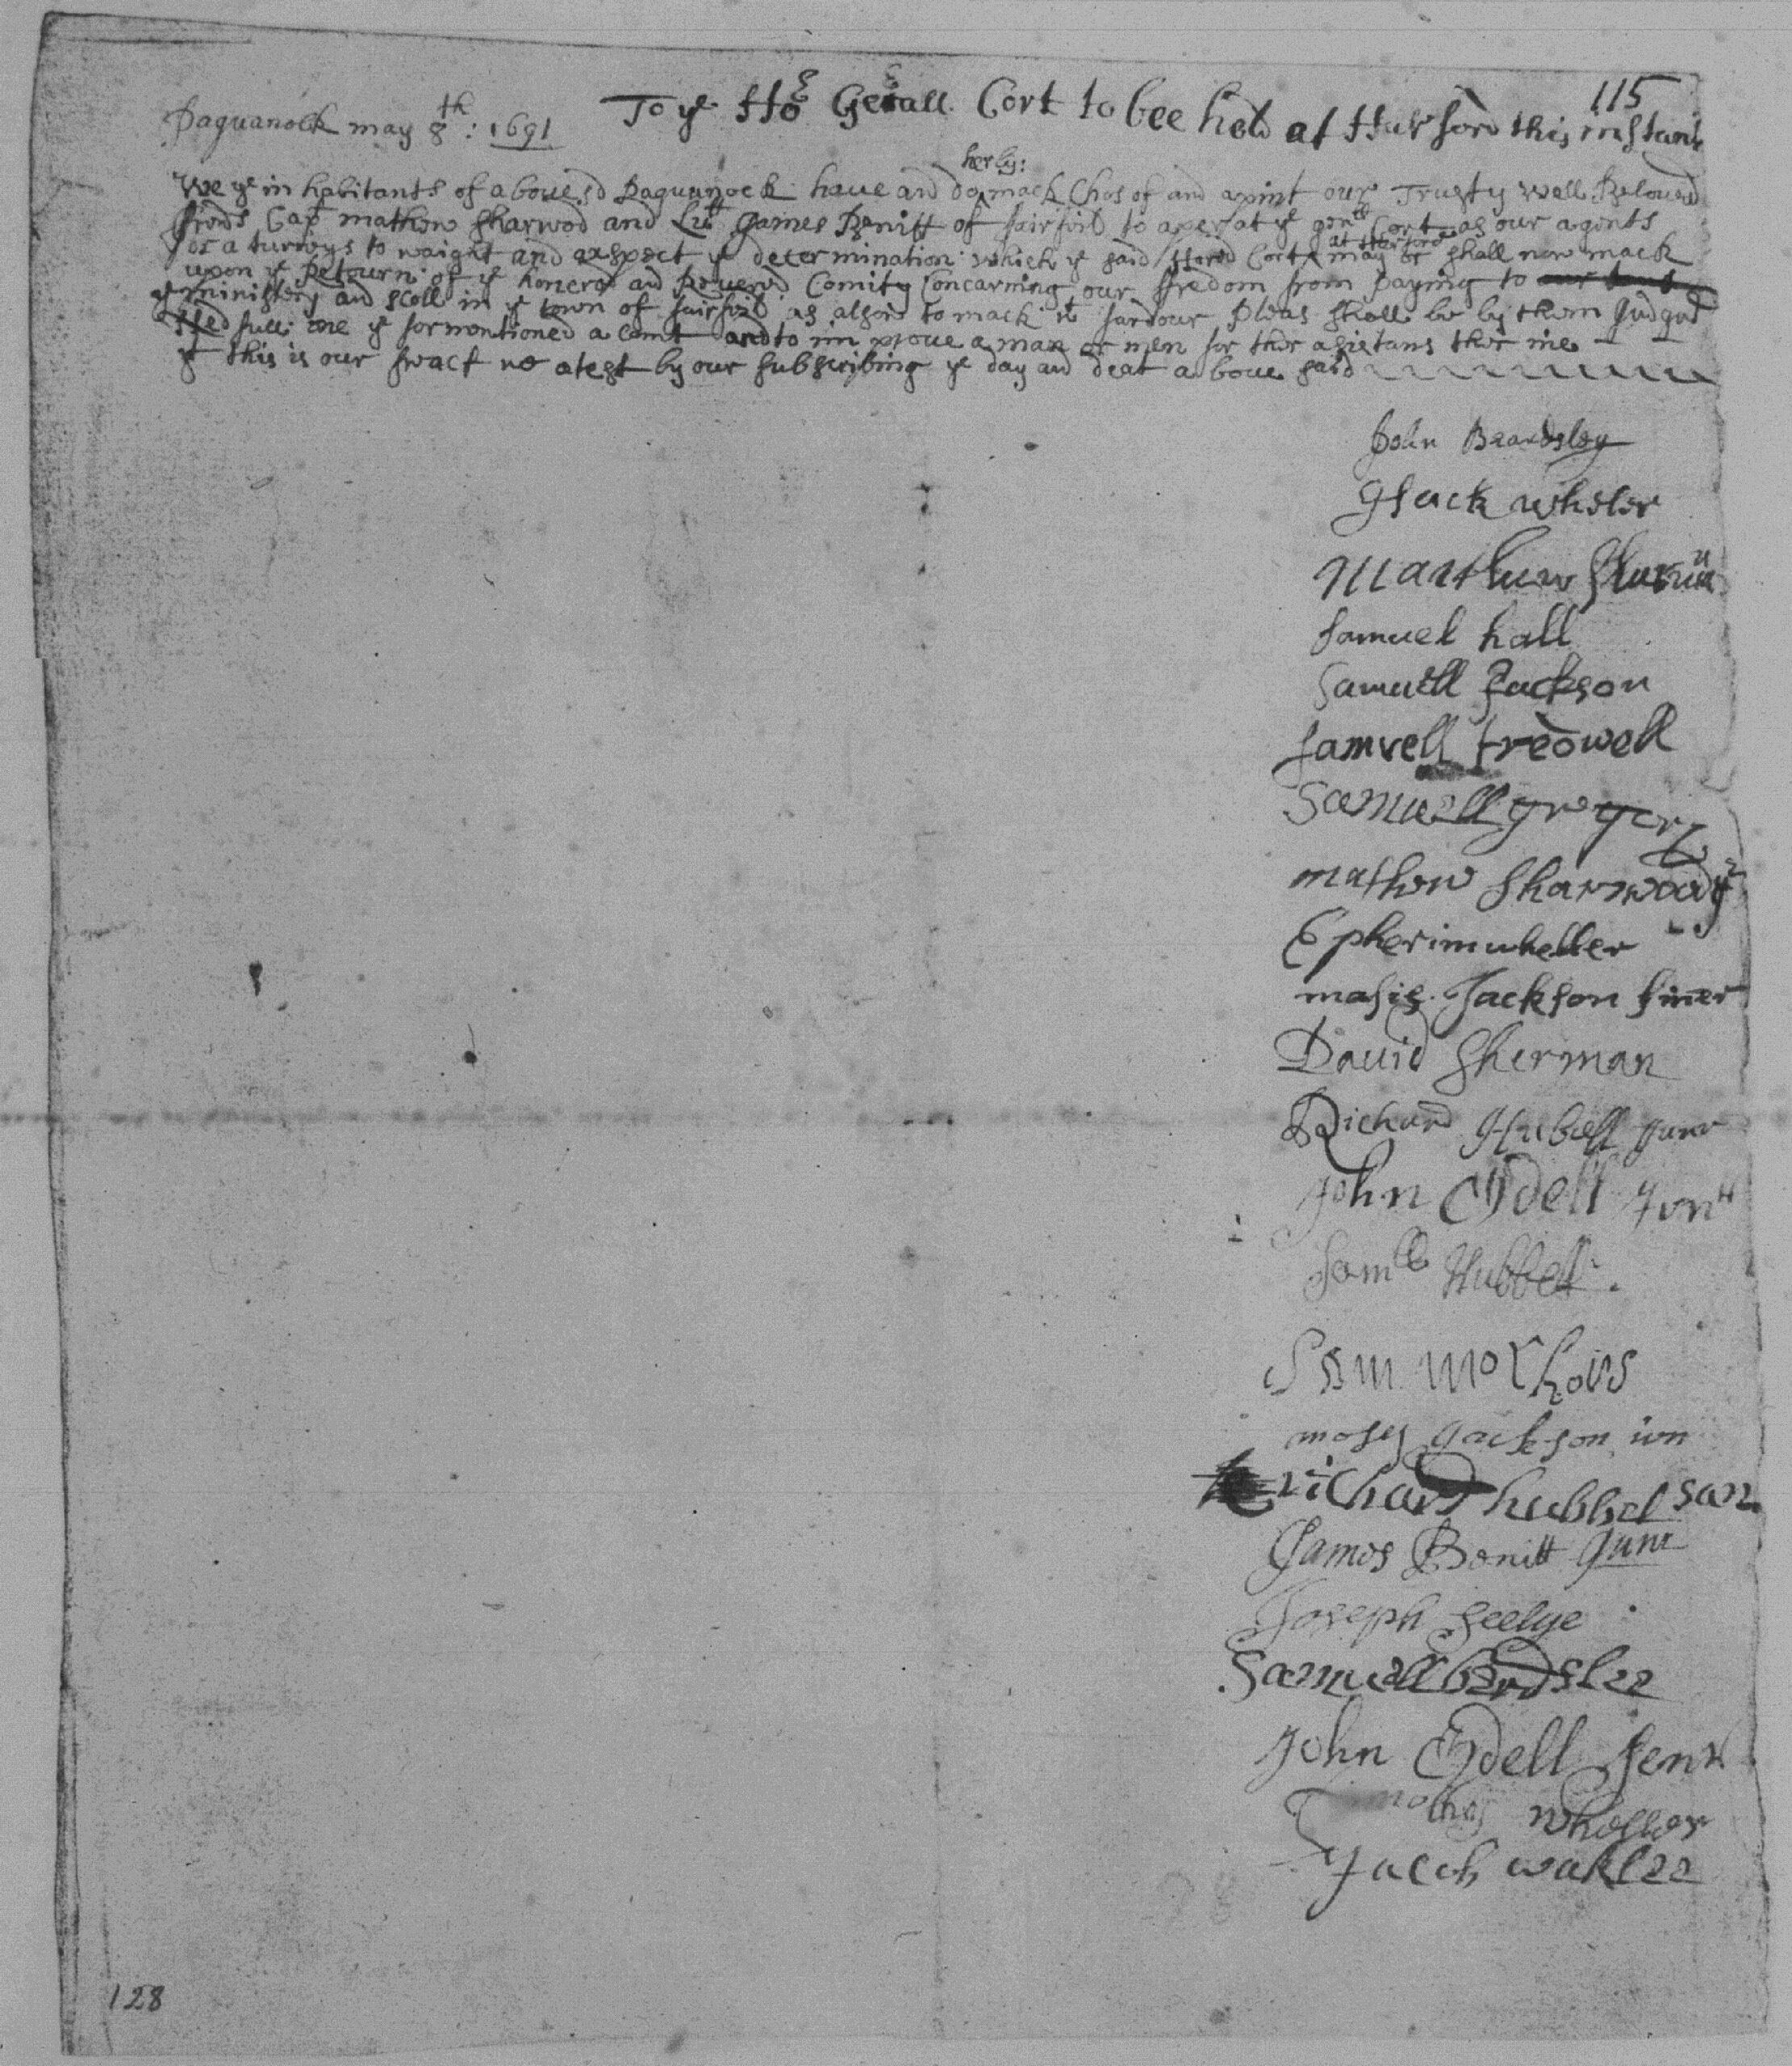 115
To ye Hon Gerall Cort to bee held at Harford this instant
Paquanock may 8th : 1691
herby:
We ye in habitants of aboue sd Paquanock haue and do mack Chos of and apint our Trusty well Beloued
frends Cap mathew sharwod and Lit James Benitt of fairfild to aper at ye gen Cort as our agents
at Harford
or a turneys to waight and expect ye determination which ye said Hond Cort may or shall now mack
upon ye Retourn of ye honerd and Reuernd Comity Concarning our fredom from paying to
ye ministery and scoll in ye town of fairfild as also to mack wt fardour pleas shall be by them Judgd
Nedfull one ye formentioned acomt and to improue a man or men for ther asistans ther in
yt this is our react we atest by our subscribing ye day and deat aboue said
John Beardsley
Isack wheler
Matthew Sherwin
Samuel hall
Samuell Jackson
Samvell tredwell
Samuell gregory
mathew Sharwood
Epherim wheller
mosis Jackson siner
Dauid Sherman
Richard Hubell Junr
John Odell Junr
Samll Hubbell
Sam morhous
moses Jackson iun
richard hubbel san
James Benitt Junr
Joseph Seelye
Samuell berdslee
John Odell Senr
wheller
Jacob waklee
128